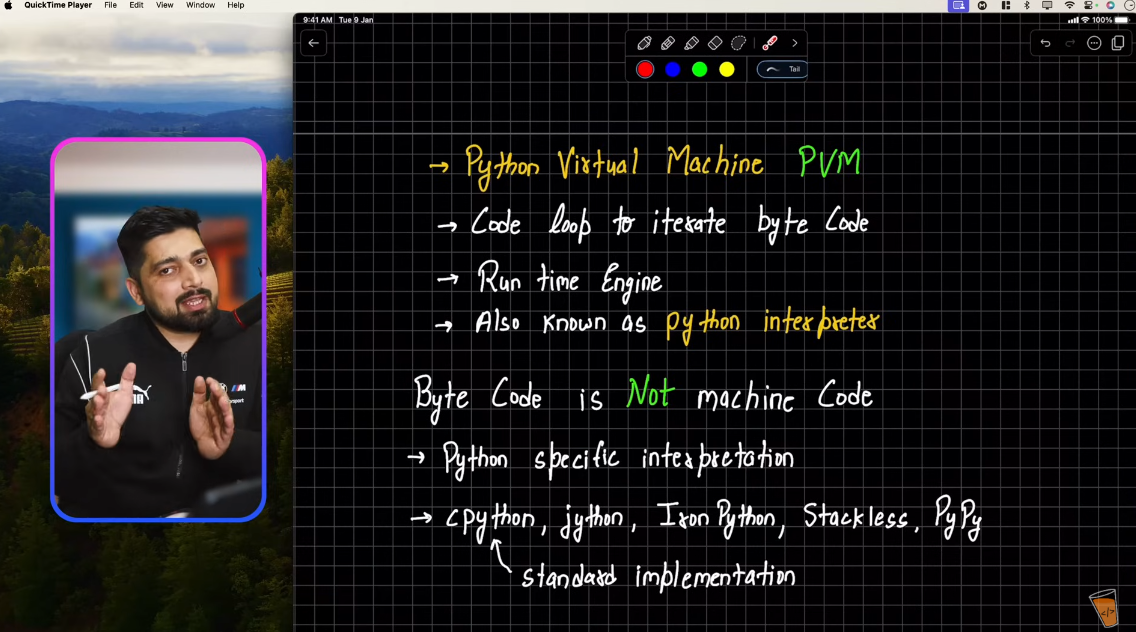 QuickTime Player File Edit View Window Help
9:41 AM Tue 9 Jan
100%
Tail
→ Python Virtual Machine PVM
→ Code loop to iterate byte Code
→ Run time Engine
→ Also known as python interpreter
Byte Code is Not machine Code
→ Python specific interpretation
→ cpython, jython, Iron Python, Stackless, PyPy
standard implementation